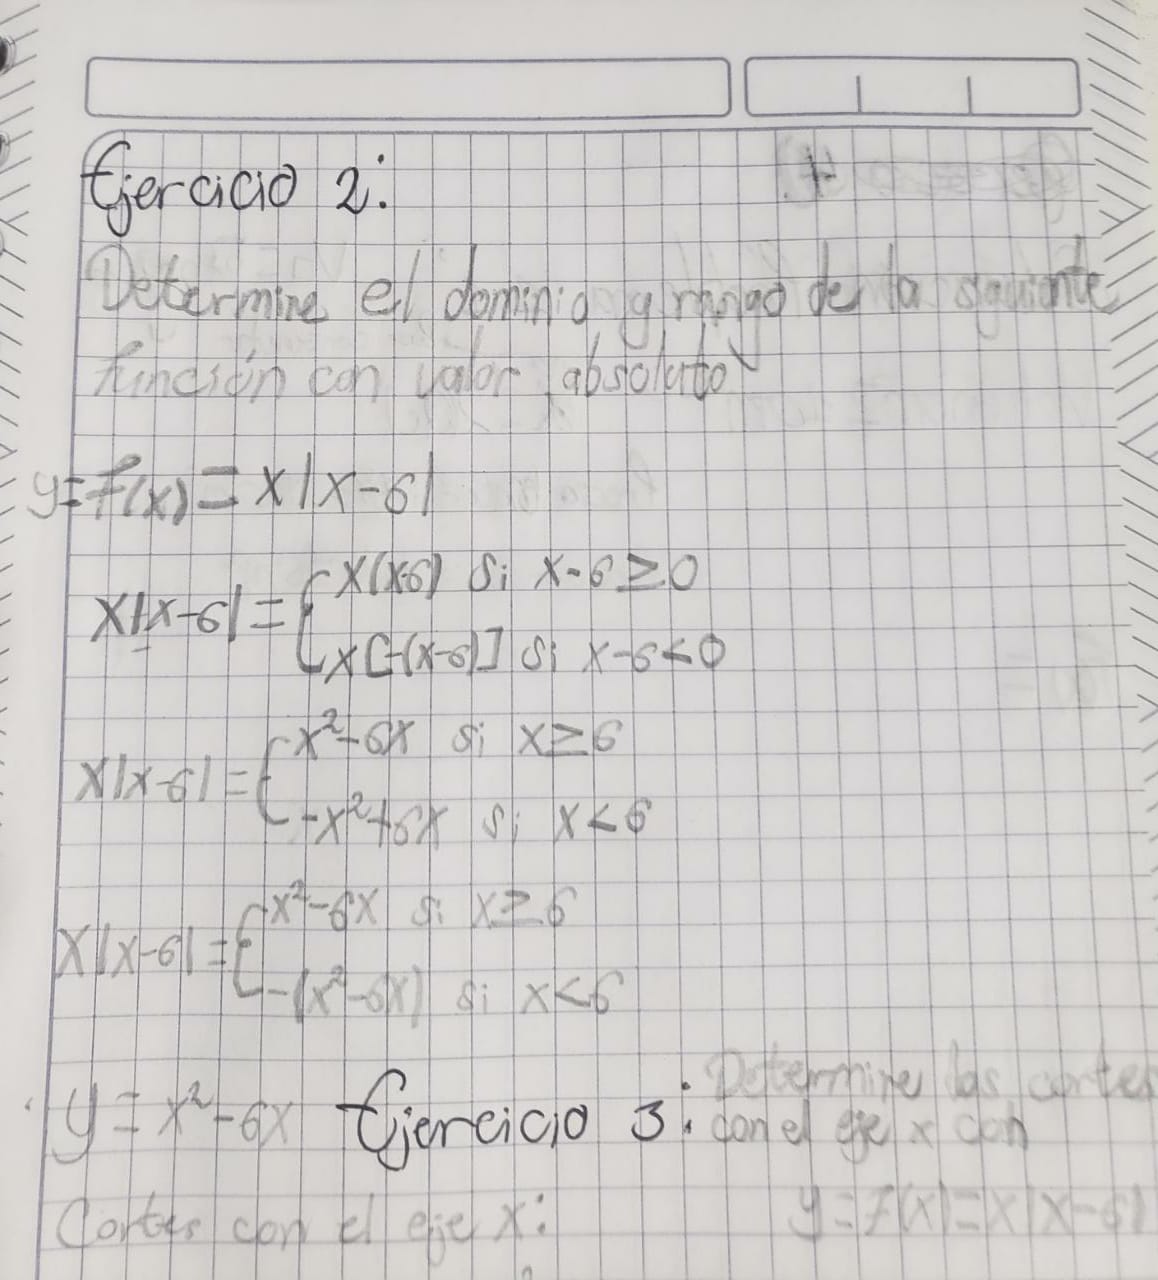 Ejercicio 2:
Determine el dominio y rango de la siguiente
función con valor absoluto
y=f(x)=x|x-6|
x|x-6|={x(x-6) si x-6≥0
x[-(x-6)] si x-6<0
x|x-6|={x²-6x si x≥6
-x²+6x si x<6
x|x-6|={x²-6x si x≥6
-(x²-6x) si x<6
y=x²-6x Ejercicio 3: Determine las cortes
con el eje x con
Cortes con el eje x: y=f(x)=x|x-6|